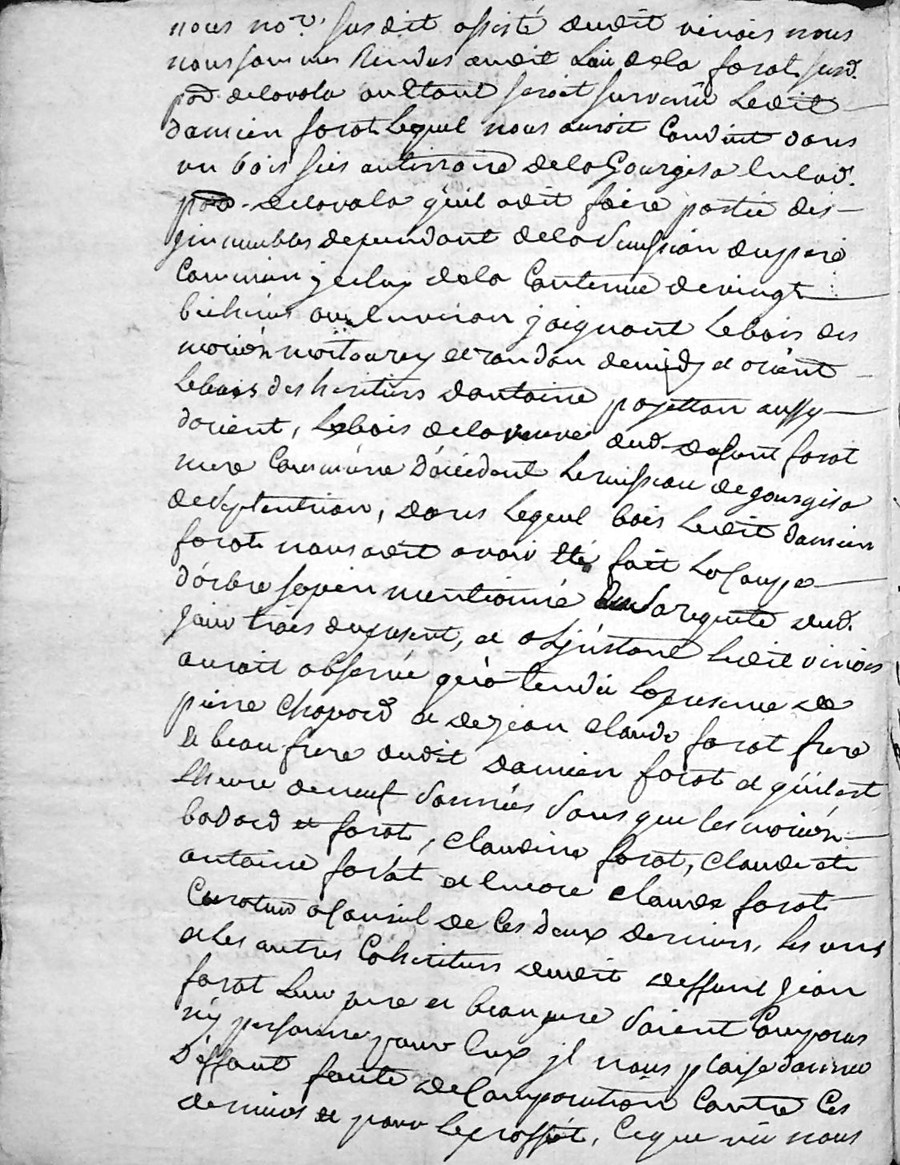 nous no.re susdit assisté dudit vinois nous
nous sommes Rendus audit Lieu de la forat susd.
par. delavala aultant seroit survenû Ledit
damien forat Lequel nous auroit Conduit dans
un bois sies au tirroire de la Gourgisa en lad.
par. delavala qu'il adit faire partie des
jmmeubles dependant de la sucession du pere
Commun jceluy de la Contenue de vingt
bicheres ou Environ joignant Le bois des
moriés mortourey et randan de midy et orient
Le bois des heritiers dantoine pozettan aussy
dorient, Le bois de la veuve dud. defunt forat
mere Commune d'occident Le ruisseau de gourgisa
de septentrion, dans Lequel bois Ledit damien
forat nous adit avoir été fait La Coupe
d'arbre sapin mentionné En sa requete dud.
jour trois du present, et a L'jnstant Ledit vinois
auroit observé qu'atendu La presence de
pierre Chapard et de jean Claude forat frere
et beau frere dudit Damien forat et qu'il est
L'heure de neuf sonnées sans que les moriés
badard et forat, Claudine forat, Claude et
antoine forat et Encore Claude forat
Curateur a Conseil de Ces deux derniers, Les uns
et Les autres Coheritiers dudit deffunt jean
forat Leur pere et beau pere soient Comparus
n'y personne pour Eux jl nous plaise donner
Deffaut faute de Comparution Contre Ces
derniers et pour Le proffit, Ce que vû nous